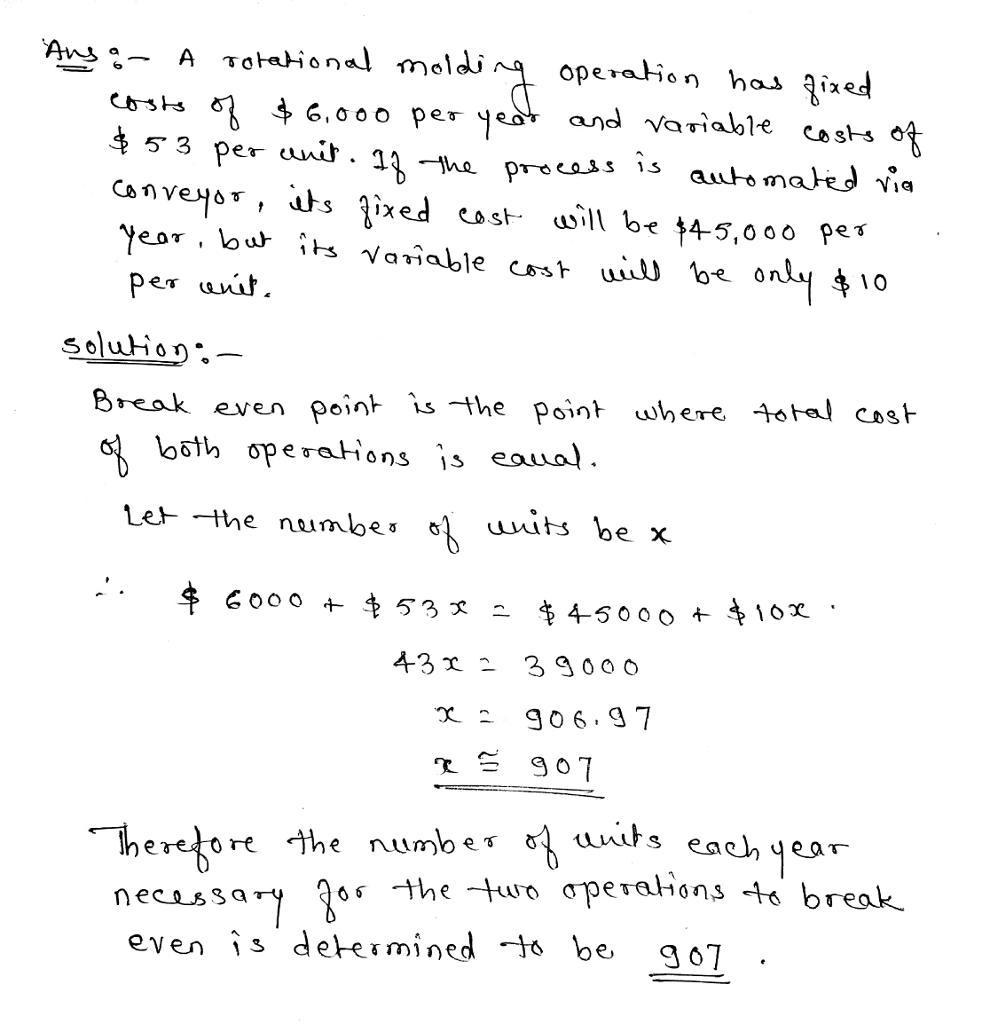 Ans :- A rotational molding operation has fixed
costs of $6,000 per year and variable costs of
$53 per unit. If the process is automated via
conveyor, its fixed cost will be $45,000 per
year, but its variable cost will be only $10
per unit.
Solution :-
Break even point is the point where total cost
of both operations is equal.
Let the number of units be x
∴ $6000 + $53x = $45000 + $10x.
43x = 39000
x = 906.97
x ≅ 907
Therefore the number of units each year
necessary for the two operations to break
even is determined to be 907.